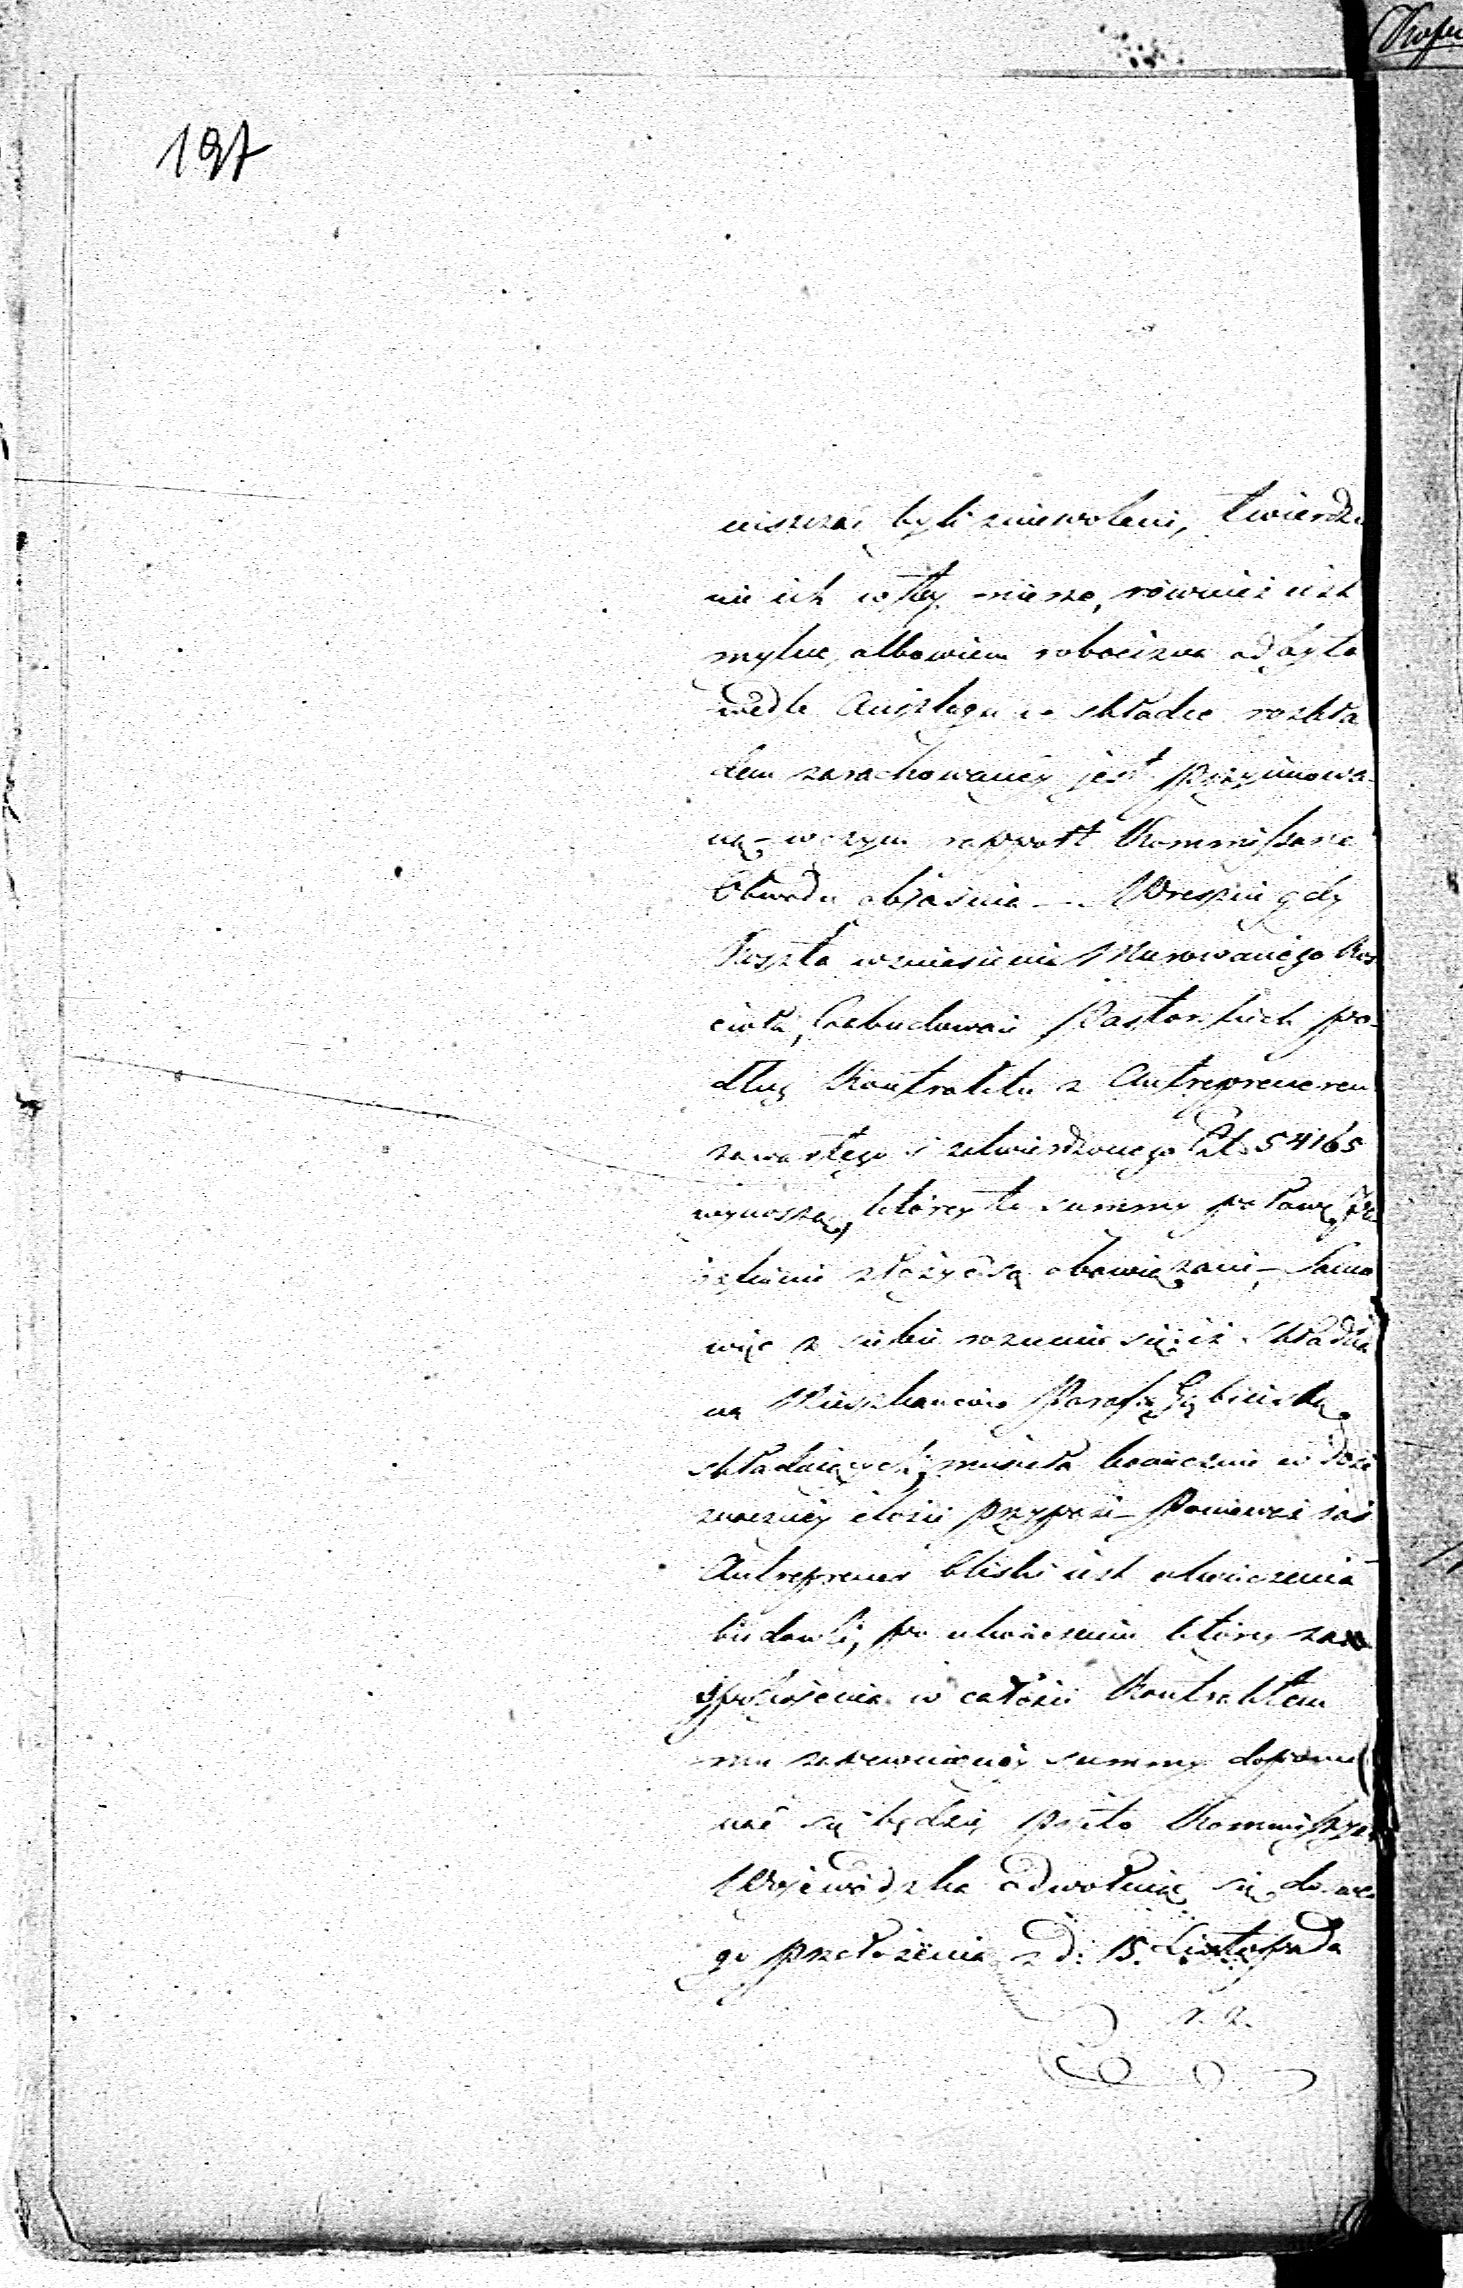 197
niszczać byli zniewoleni, twierdze
nie ich w tey mierze, również iest
mylne, albowiem robocizna odbyta
wedle Anszlagu w składce rozkła
dem zarachowaney jest przyimowa-
ną - w czym rapport Kommissarza
Obwodu obiaśnia - Wreszcie gdy
koszta wzniesienia Murowanego Koś
cioła, Zabudowań Pastorskich po-
dług Kontraktu z Antreprenerem
zawartego i zatwierdzonego Złt. 54165
wynoszą, którey to summy połowę
złożyć są obowiązani - Samo
więc z siebie rozumie się iż składka
na Mieszkańców Parafię Gąbińską
składaiących, musiała koniecznie w dość
znaczney ilości przypaść - Ponieważ zaś
Antreprener bliski iest ukończenia
budowli, po ukończeniu którey zas
pokoienia w całości Kontraktem
mu zapewnioney summy dopomi
nać się będzie przeto Kommissya
Woiewódzka odwołuiąc się do swe
go przełożenia z d: 15. Listopada
r. z.